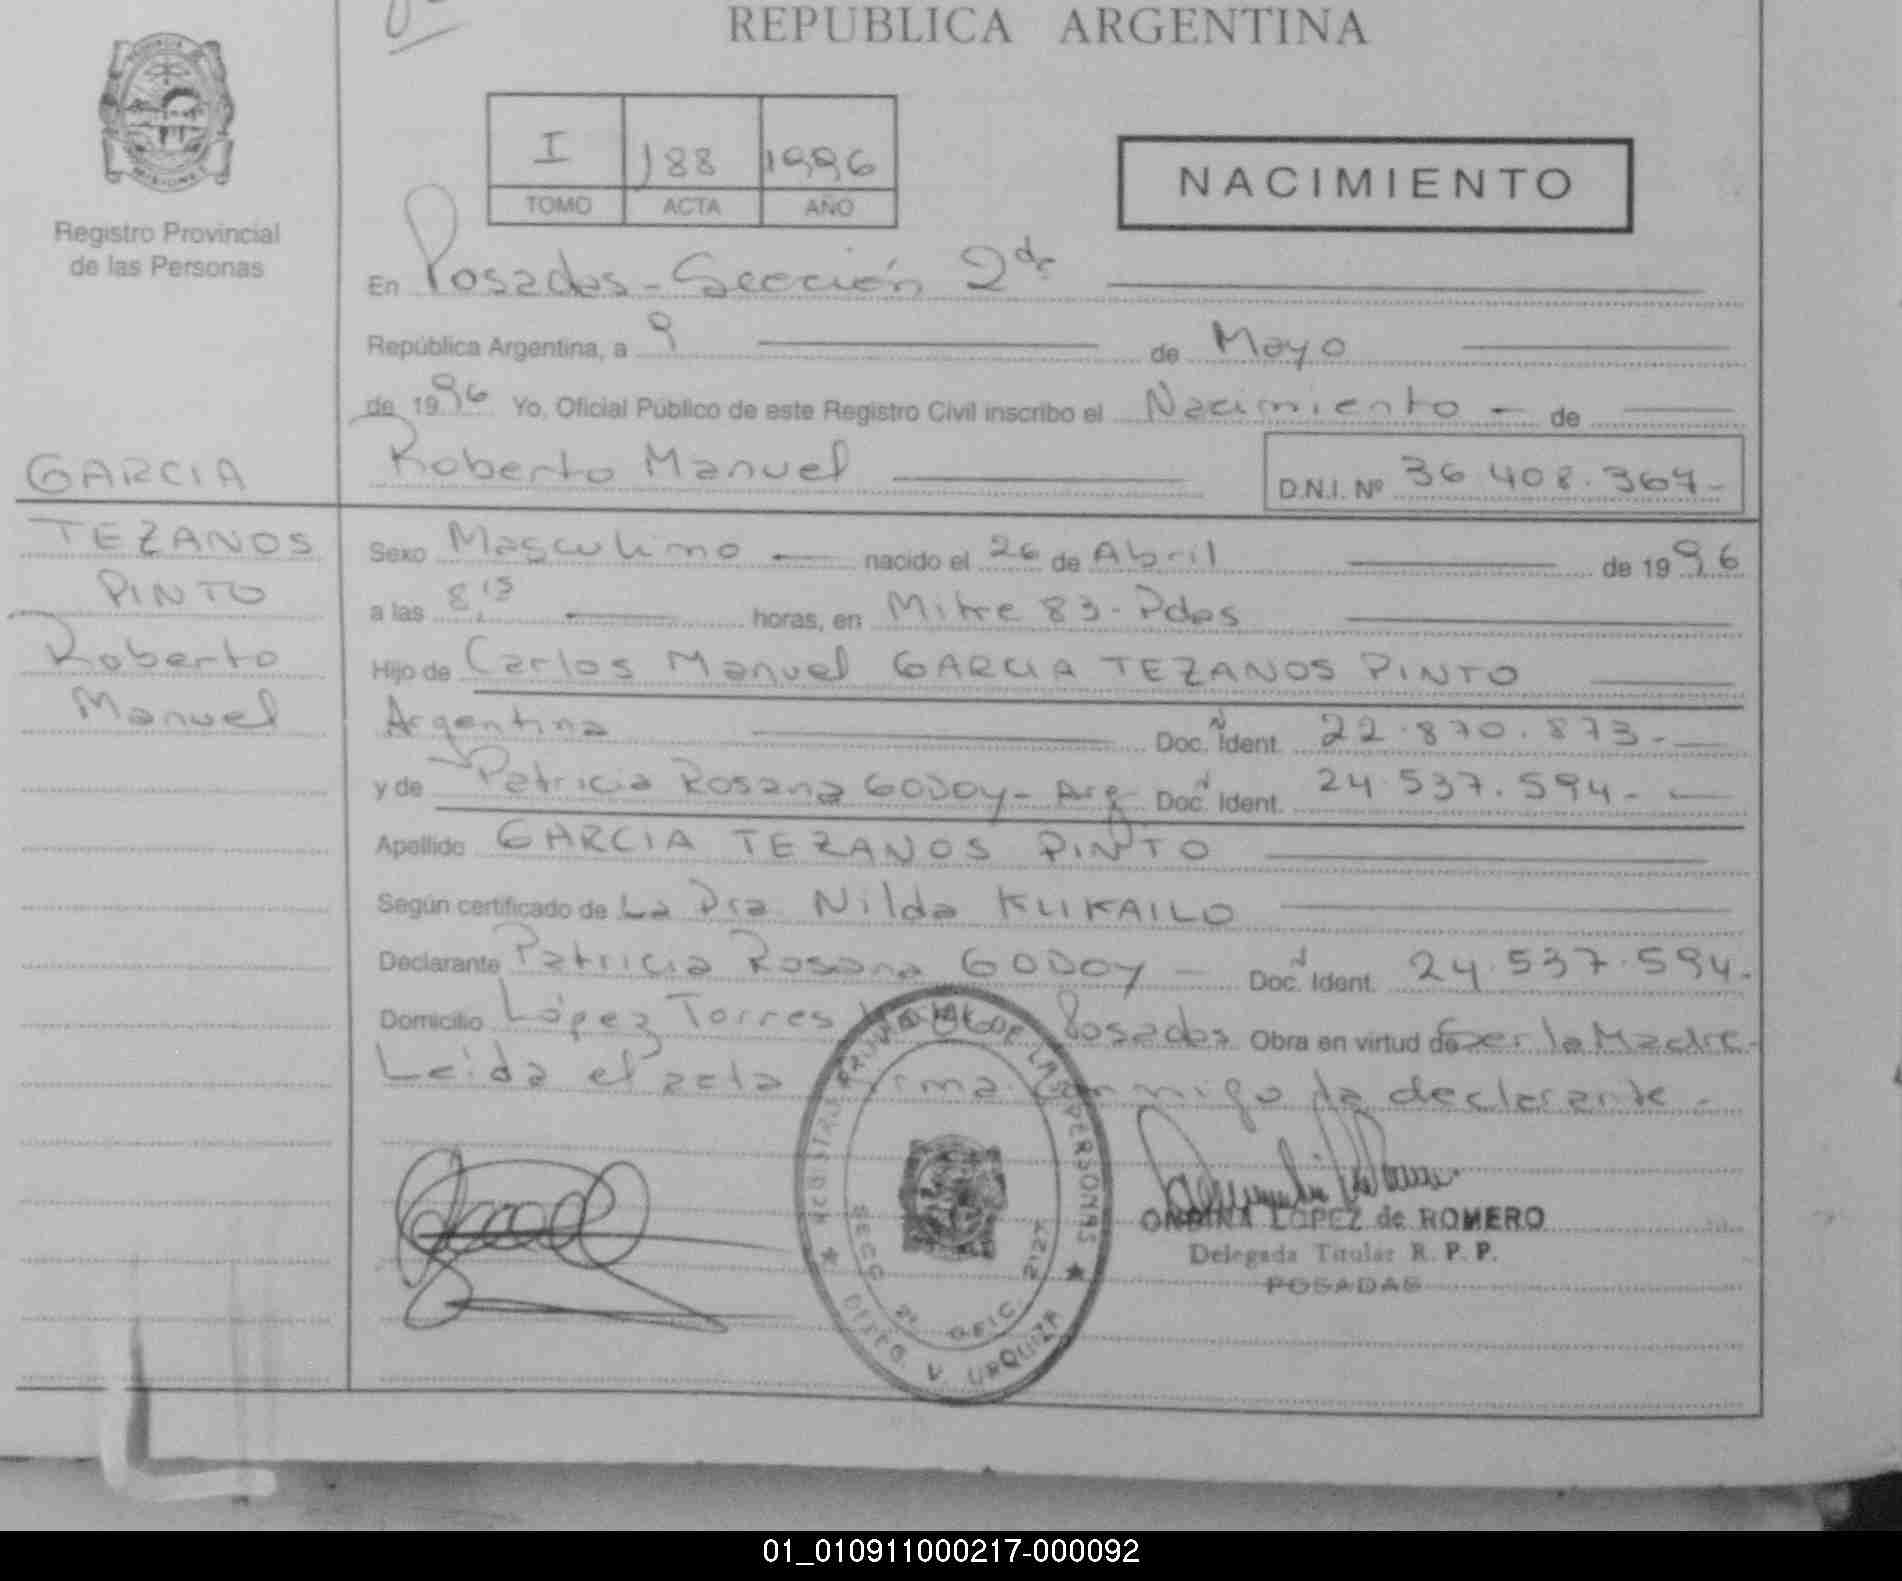 REPUBLICA ARGENTINA
Registro Provincial
de las Personas
I 188 1996
TOMO ACTA AÑO
NACIMIENTO
En Posadas - Sección 2da
República Argentina, a 9 de Mayo
de 1996 Yo, Oficial Público de este Registro Civil inscribo el Nacimiento - de
Roberto Manuel D.N.I. Nº 36.408.367-
GARCIA
TEZANOS
PINTO
Roberto
Manuel
Sexo Masculino nacido el 26 de Abril de 1996
a las 8,15 horas, en Mitre 83 - Pdas
Hijo de Carlos Manuel GARCIA TEZANOS PINTO
Argentina Doc. Ident. 22.870.873-
y de Patricia Rosana GODOY - Arg Doc. Ident. 24.537.594-
Apellido GARCIA TEZANOS PINTO
Según certificado de La Dra Nilda KLIKAILO
Declarante Patricia Rosana GODOY - Doc. Ident. 24.537.594.
Domicilio López Torres Posadas Obra en virtud de Ser la Madre-
Leida el acta firma conmigo la declarante.-
REGISTRO PROVINCIAL DE LAS PERSONAS
SECC 2ª OFIC 2127
DPTO. V. URQUIZA
LOPEZ de ROMERO
Delegada Titular R. P. P.
POSADAS
01_010911000217-000092